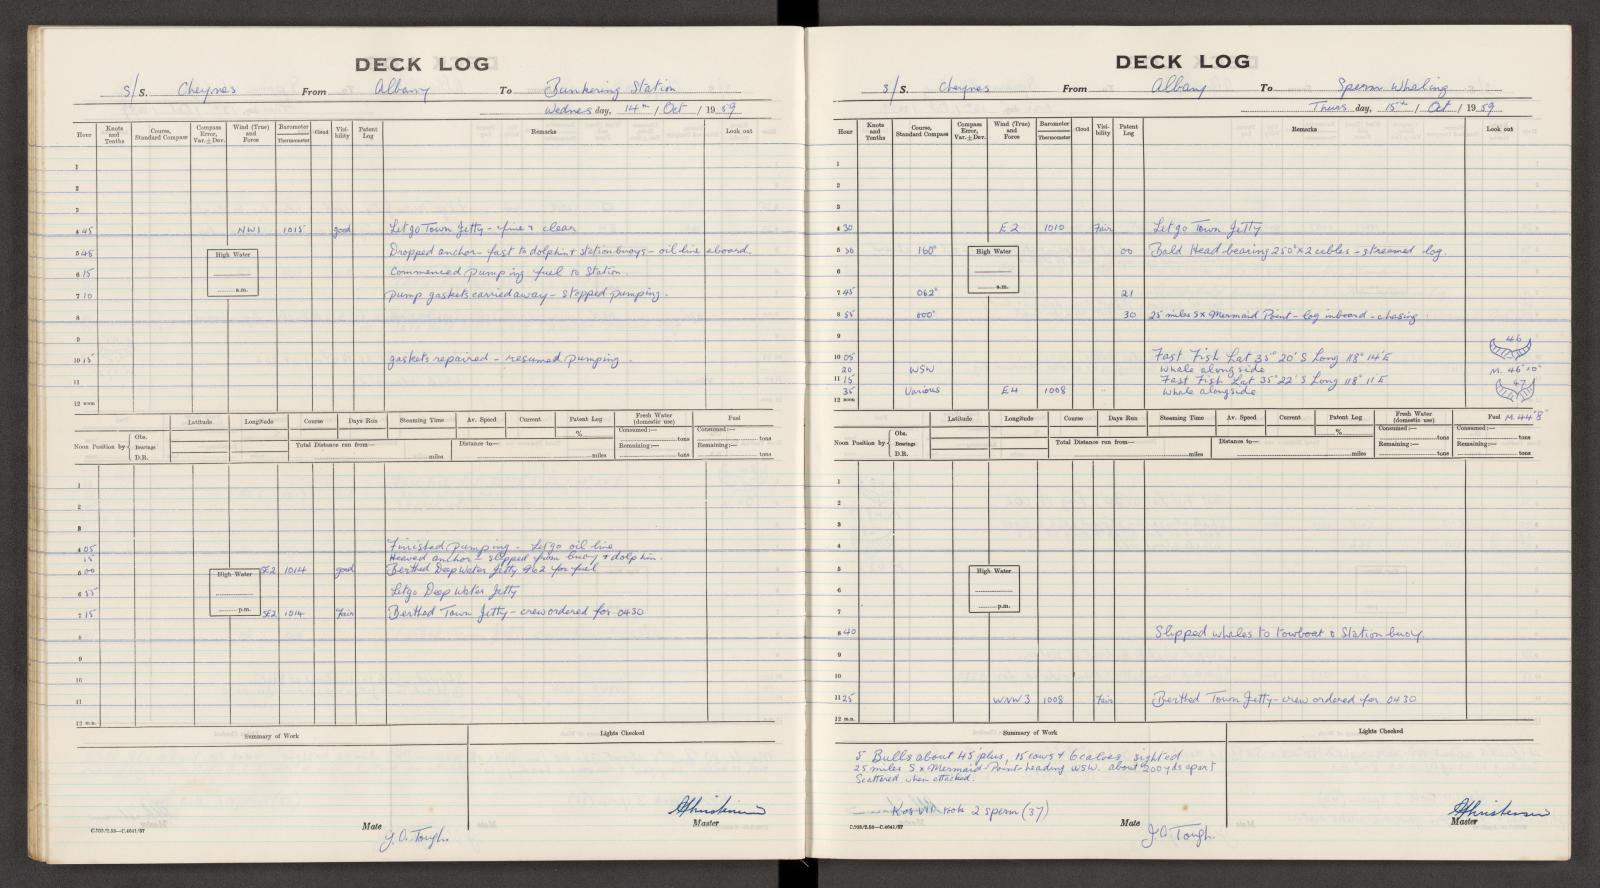 DECK LOG
S/S. Cheynes From Albany To Bunkering Station
Wednesday, 14th / Oct / 1959
Hour Knots and Tenths Course, Standard Compass Compass Error, Var. ± Dev. Wind (True) and Force Barometer Thermometer Cloud Visibility Patent Log Remarks Look out
1
2
3
4 45 NW1 1015 good Let go Town Jetty - fine & clear
5 45 Dropped anchor - fast to dolphin & station buoys - oil line aboard.
High Water
a.m.
6 15 Commenced pumping fuel to Station.
7 10 pump gaskets carried away - stopped pumping.
8
9
10 15 gaskets repaired - resumed pumping.
11
12 noon
Latitude Longitude Course Days Run Steaming Time Av. Speed Current Patent Log Fresh Water (domestic use) Fuel
% Consumed:— tons Consumed:— tons
Noon Position by Obs. Bearings D.R. Total Distance run from— miles Distance to— miles Remaining:— tons Remaining:— tons
1
2
3
4 05 Finished pumping - Let go oil line
15 Heaved anchor - slipped from buoy & dolphin.
5 00 SE2 1014 good Berthed Deep Water Jetty No2 for fuel
High Water
p.m.
6 55 Let go Deep Water Jetty
7 15 SE2 1014 Fair Berthed Town Jetty - crew ordered for 0430
8
9
10
11
12 m.n.
Summary of Work Lights Checked
C.703/2.58—C.4041/57
Mate J.O. Tough.
Master
DECK LOG
S/S. Cheynes From Albany To Sperm Whaling
Thursday, 15th / Oct / 1959
Hour Knots and Tenths Course, Standard Compass Compass Error, Var. ± Dev. Wind (True) and Force Barometer Thermometer Cloud Visibility Patent Log Remarks Look out
1
2
3
4 30 E2 1010 Fair Let go Town Jetty
5 30 160° 00 Bald Head bearing 250° x 2 cables - streamed log.
High Water
a.m.
6
7 45 062° 21
8 55 000° 30 25 miles SxMermaid Point - log inboard - chasing
9
10 05 Fast Fish Lat 35° 20' S Long 118° 14'E 46
20 WSW Whale alongside M. 46'10"
11 15 Fast Fish Lat 35° 22' S Long 118° 11'E 47
35 Various E4 1008 Whale alongside
12 noon
M. 44'8"
Latitude Longitude Course Days Run Steaming Time Av. Speed Current Patent Log Fresh Water (domestic use) Fuel
% Consumed:— tons Consumed:— tons
Noon Position by Obs. Bearings D.R. Total Distance run from— miles Distance to— miles Remaining:— tons Remaining:— tons
1
2
3
4
5
High Water
p.m.
6
7
8 40 Slipped whales to towboat & Station buoy.
9
10
11 25 WNW3 1008 Fair Berthed Town Jetty - crew ordered for 0430
12 m.n.
Summary of Work Lights Checked
5 Bulls about 45' plus, 15 cows & 6 calves, sighted
25 miles SxMermaid Point heading WSW. about 200 yds apart
Scattered when attacked.
Kos VII took 2 sperm (37)
C.703/2.58—C.4041/57
Mate J.O. Tough.
Christensen
Master